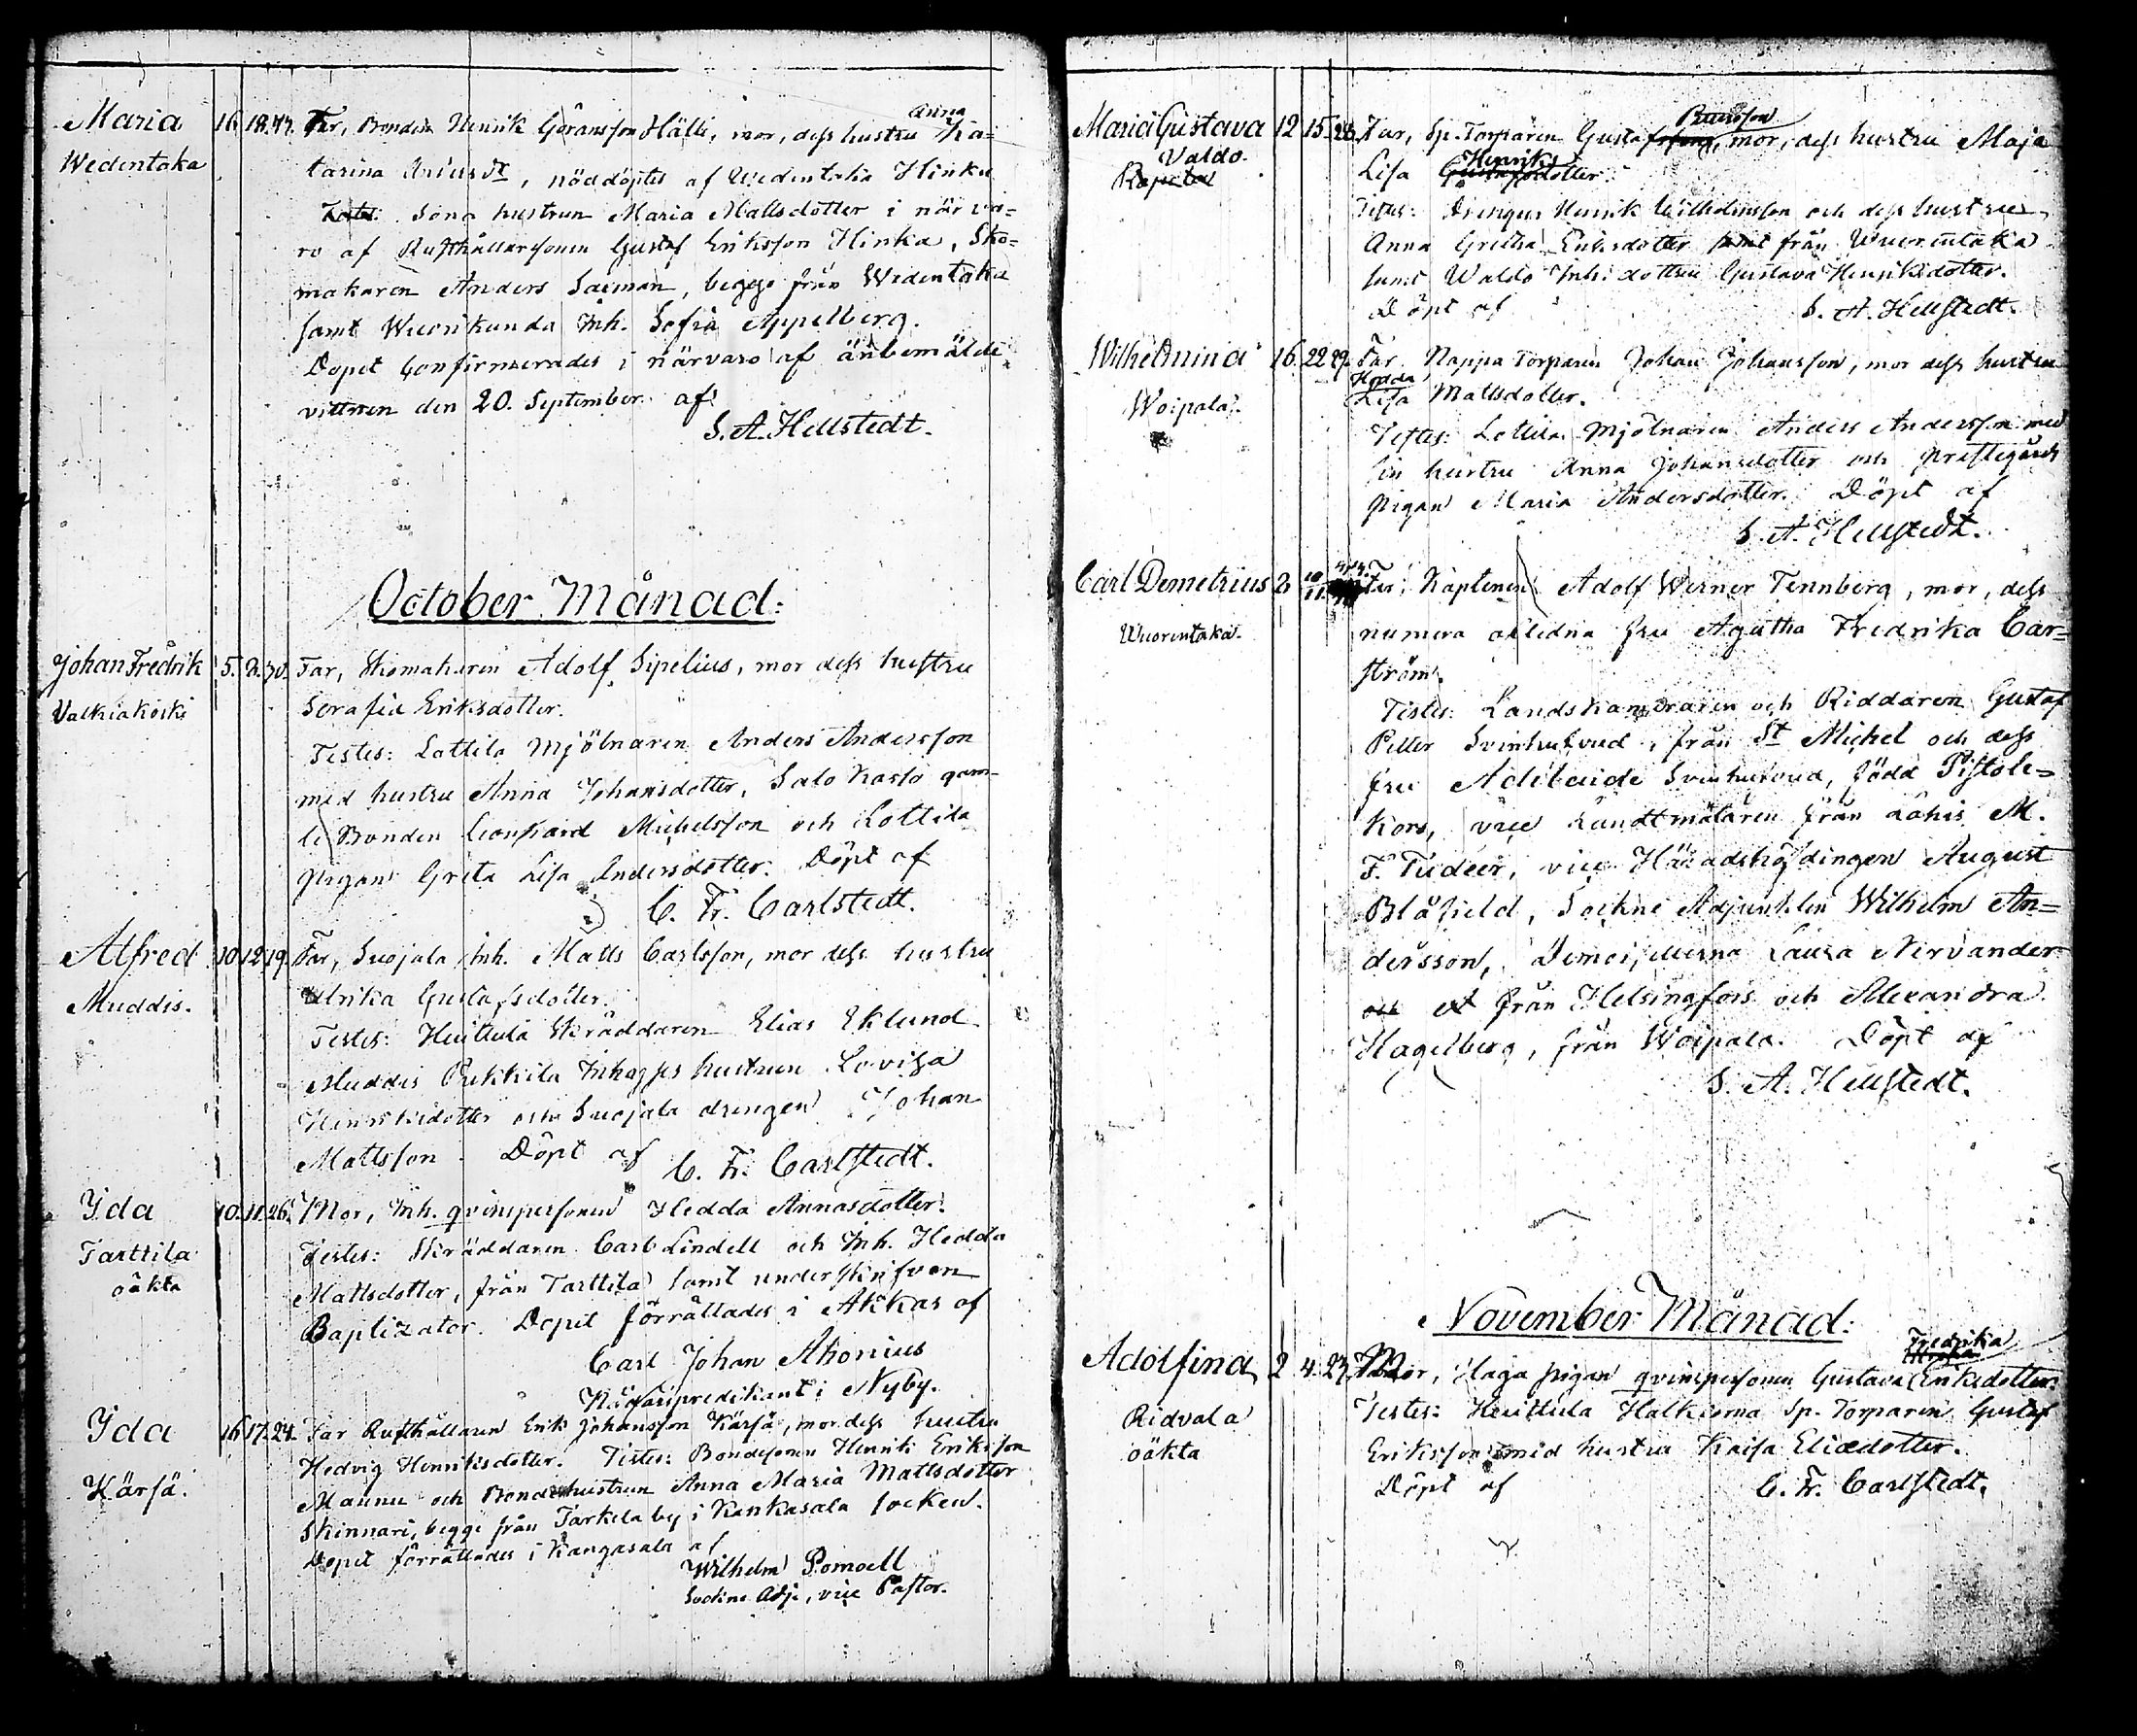 Maria 16. 18. 47. Far, Bonden Henrik Göransson Hälli, mor, dess hustru Anna Ka=
Wedentaka tarina Ariusdr, nöddöptes af Wedentaka Hinku
Testes: Sona hustrun Maria Mattsdotter i närva=
ro af Rusthållarsonen Gustaf Eriksson Hinka, Sko=
makaren Anders Saiman, begge från Wedentaka
samt Wuorikunda Inh. Sofia Appelberg.
Dopet Confirmerades i närvaro af ånbemälde
vittnen den 20. September af
S. A. Hellstedt.
October Månad:
Johan Fredrik 5. 8. 30. Far, Skomakaren Adolf Sipelius, mor dess hustru
Valkiakoski Serafia Eriksdotter.
Testes: Lottila Mjölnaren Anders Andersson
med hustru Anna Johansdotter, Salo Kasto gam-
le Bonden Leonhard Michelsson och Lottila
pigan Greta Lisa Andersdotter. Döpt af
C. Fr. Carlstedt.
Alfred 10. 12. 19. Far, Suojala Inh. Matts Carlsson, mor dess hustru
Muddis. Ulrika Gustafsdotter.
Testes: Huittula Skräddaren Elias Eklund
Muddis Pekkila Inhyses hustrun Lovisa
Henriksdotter och Suojala drengen Johan
Mattsson. Döpt af C. Fr. Carlstedt.
Ida 10. 11. 26. Mor, Inh. qvinspersonen Hedda Annasdotter.
Tarttila Testes: Skräddaren Carl Lindell och Inh. Hedda
oäkta Mattsdotter, från Tarttila samt underskrifven
Baptizator. Dopet förrättades i Akkas af
Carl Johan Ahonius
Nådårspredikant i Nyby.
Ida 16. 17. 24. Far Rusthållaren Erik Johansson Kärsä, mor dess hustru
Kärsä. Hedvig Henriksdotter. Testes: Bondesonen Henrik Eriksson
Maunu och Bondehustrun Anna Maria Mattsdotter
Skinnari, begge från Tarkela by i Kankasala socken.
Dopet förrättades i Kangasala af
Wilhelm Pomoell
Sockne Adj., vice Pastor.
Maria Gustava 12. 15. 28. Far, Sp. Torparen Gustaf , mor, dess hustru Maja
Valdo. Lisa Henriksdotter.
Testes: Drengen Henrik Wilhelmsson och dess hustru
Anna Gretha Eriksdotter från Wuorentaka
samt Waldo Inh. dottren Gustava Henriksdotter.
Döpt af S. A. Hellstedt.
Wilhelmina 16. 22. 29. Far Nappa Torparen Johan Johansson, mor dess hustru
Woipala. Hedda Lisa Mattsdotter.
Testes: Lottila Mjölnaren Anders Andersson med
sin hustru Anna Johansdotter och prestegårds
pigan Maria Andersdotter. Döpt af
S. A. Hellstedt.
Carl Demetrius 2. 10/11. 44. Far, Kaptenen Adolf Werner Tennberg, mor, dess
Wuorentaka. numera aflidna fru Agatha Fredrika Car=
ström.
Testes: Landskamreraren och Riddaren Gustaf
Petter Svinhufvud, från St Michel och dess
fru Adelaide Svinhufvud, född Pistole=
kors, vice Landtmätaren från Lahis M.
F. Tudeer, vice Häradshöfdingen August
Blåfield, Sockne Adjunkten Wilhelm An=
dersson, Demoisellerna Laura Nervander
från Helsingfors och Alexandra
Hagelberg, från Woipala. Döpt af
S. A. Hellstedt.
November Månad:
Adolfina 2. 4. 23. Mor, Haga pigan qvinspersonen Gustava Fredrika Eriksdotter.
Ridvala Testes: Huittula Halkioma Sp. Torparen Gustaf
oäkta Eriksson med hustru Kaisa Eliædotter.
Döpt af C. Fr. Carlstedt.